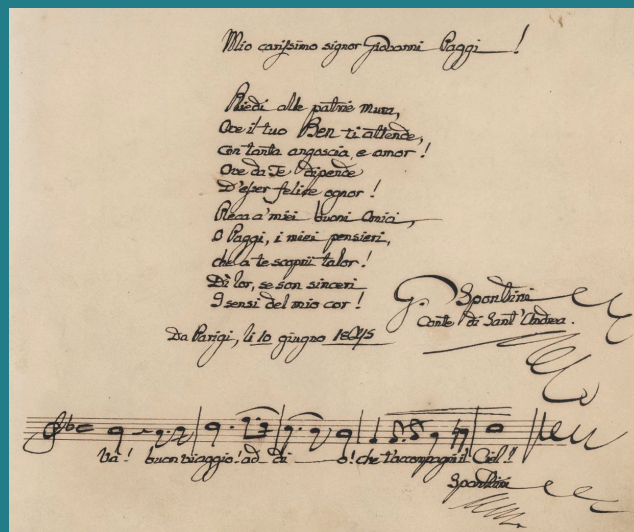 Mio carissimo signor Giovanni Paggi !
Riedi alle patrie mura,
Ove il tuo Ben ti attende,
Con tanta angoscia, e amor !
Ove da Te dipende
D'esser felice ognor !
Reca a' miei buoni Amici,
O Paggi, i miei pensieri,
che a te scoprii talor !
Di lor, se son sinceri
I sensi del mio cor !
G. Spontini
Conte di Sant' Andrea.
Da Parigi, li 10 giugno 1845
Va! buon viaggio! ad di o! che t'accompagni il Ciel!!
Spontini